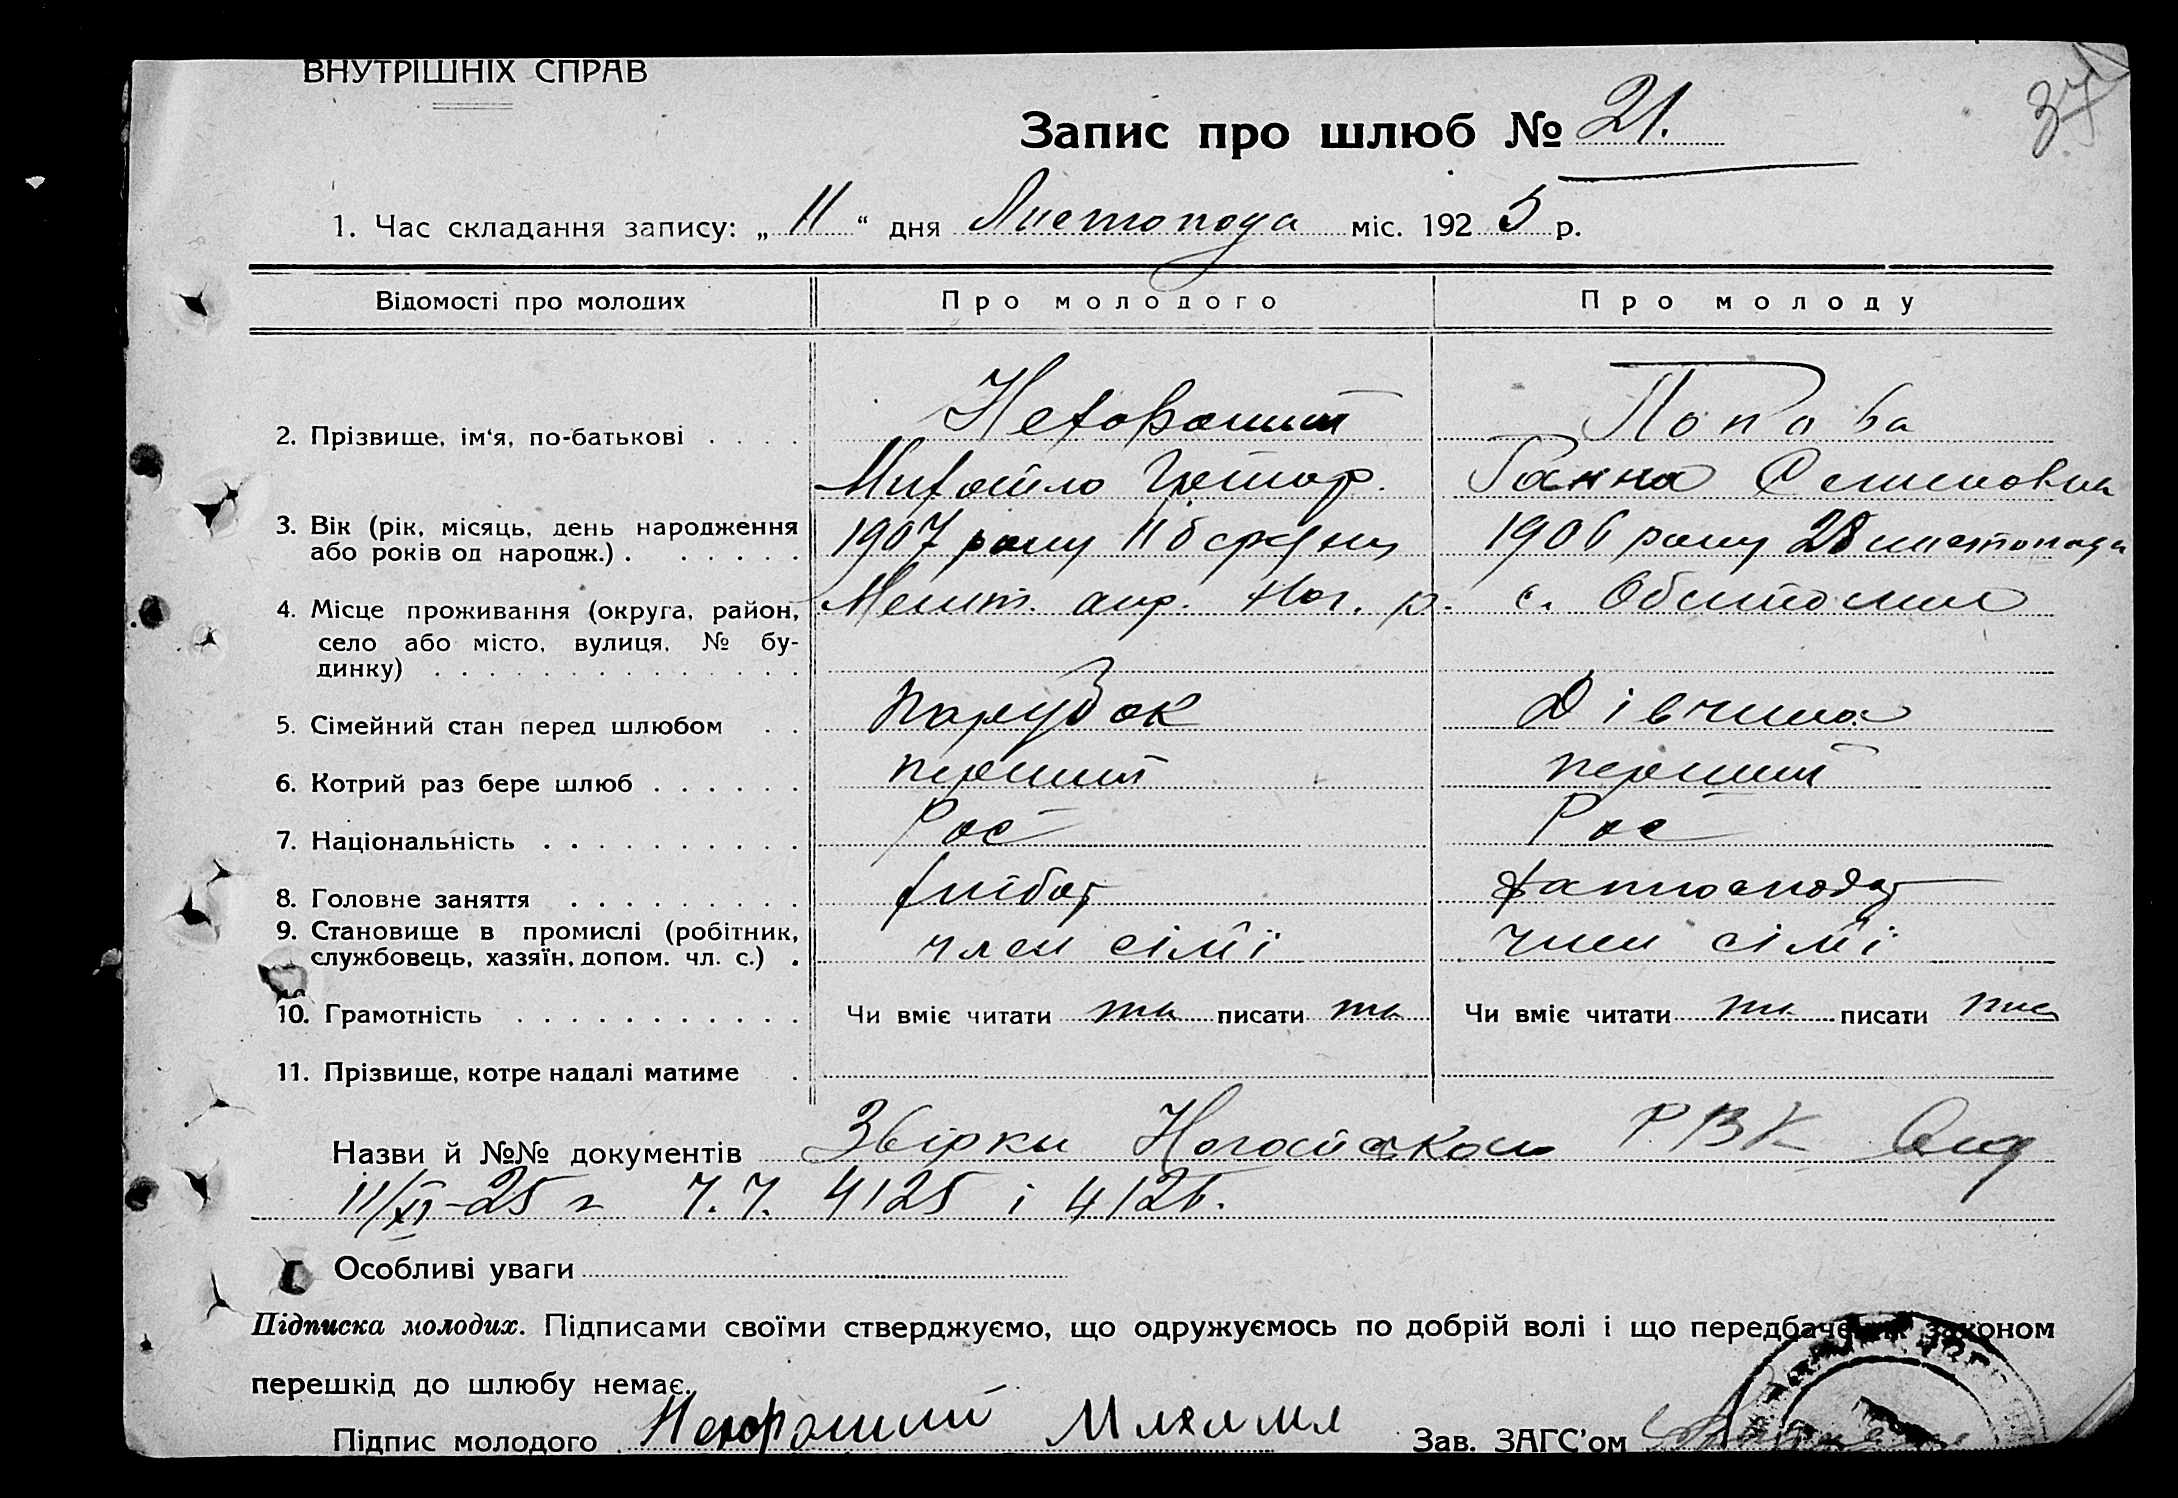 ВНУТРІШНІХ СПРАВ
37
Запис про шлюб № 21.
1. Час складання запису: „ 11 “ дня Листопода міс. 192 5 р.
Відомості про молодих Про молодого Про молоду
Нехороший Попова
2. Прізвище, ім'я, по-батькові . . . .
Михайло Ганна Семеновна
3. Вік (рік, місяць, день народження
або років од народж.) . . . . . . 1907 року 11 1906 року 28 листопада
4. Місце проживання (округа, район, Меліт. окр. Ног. р. с.
село або місто, вулиця, № бу-
динку) . . . . . . . . . . . . . .
5. Сімейний стан перед шлюбом . . парубок Дівчина
6. Котрий раз бере шлюб . . . . . . перший перший
7. Національність . . . . . . . . . . Рос Рос
8. Головне заняття . . . . . . . . . хлібор
9. Становище в промислі (робітник,
службовець, хазяїн, допом. чл. с.) . член сімї член сімї
10. Грамотність . . . . . . . . . . . Чи вміє читати так писати так Чи вміє читати так писати
11. Прізвище, котре надалі матиме .
Назви й №№ документів Збірки РВК
11/XI-25 г 4125 і 4126.
Особливі уваги
Підписка молодих. Підписами своїми стверджуємо, що одружуємось по добрій волі і що передбачених законом
перешкід до шлюбу немає.
Підпис молодого Нехороший Зав. ЗАГС'ом